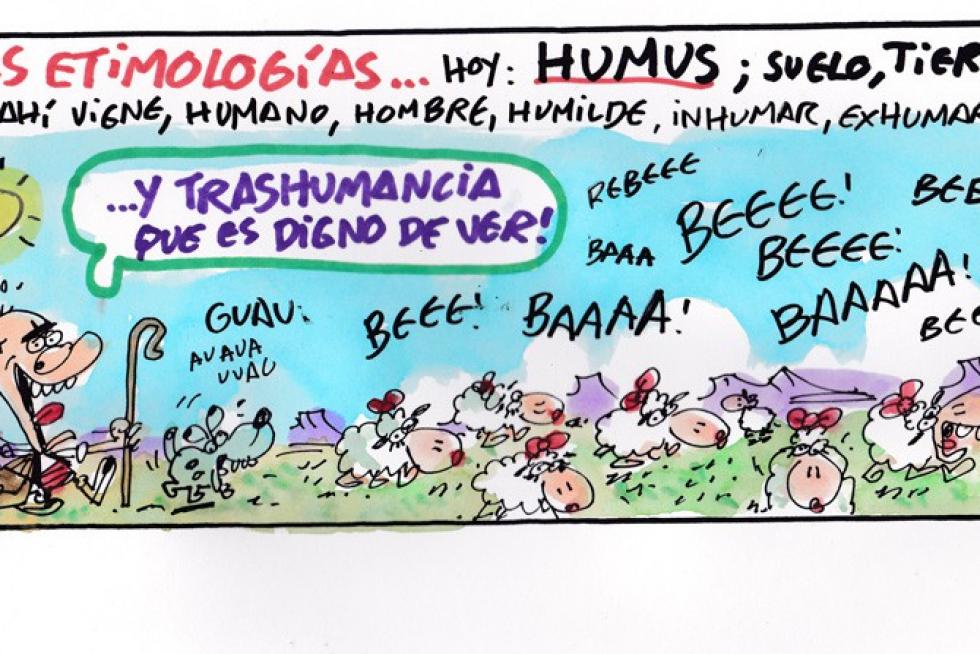 S ETIMOLOGÍAS... HOY: HUMUS; SUELO, TIER
AHÍ VIENE, HUMANO, HOMBRE, HUMILDE, INHUMAR, EXHUMAR
...Y TRASHUMANCIA
QUE ES DIGNO DE VER!
REBEEE
BEEEE!
BEE
BAAA
BEEEE!
BAAAAA!
BEE
GUAU!
AUAUA
UUAU
BEEE!
BAAAA!